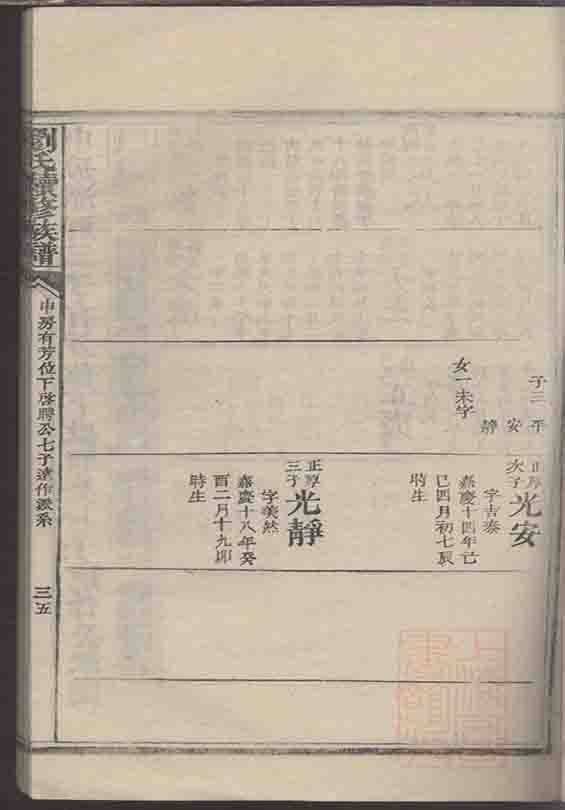 子三 平
安
靜
女一未字
正厚
次子 光安
字吉泰
嘉慶十四年己
巳四月初七辰
時生
正厚
三子 光靜
字美然
嘉慶十八年癸
酉二月十九卯
時生
劉氏續修族譜
申房有芳位下啓聘公七子達作
系
三五